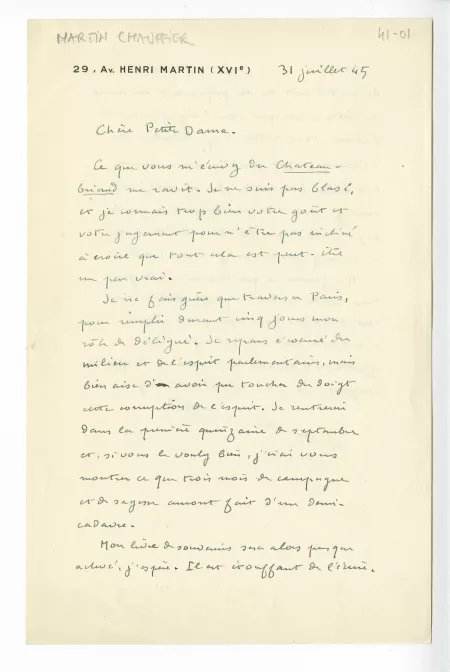 MARTIN CHAUFFIER
41-01
29, Av. HENRI MARTIN (XVIe)
31 juillet 45
Chère Petite Dame.
Ce que vous m'écrivez du Chateau-
briand me ravit. Je ne suis pas blasé,
et je connais trop bien votre goût et
votre jugement pour n'être pas incliné
à croire que tout cela est peut-être
un peu vrai.
Je ne fais guère que traverser Paris,
pour remplir durant cinq jours mon
rôle de délégué. Je repars écœuré du
milieu et de l'esprit parlementaires, mais
bien aise d'avoir pu toucher du doigt
cette corruption de l'esprit. Je rentrerai
dans la première quinzaine de septembre
et, si vous le voulez bien, j'irai vous
montrer ce que trois mois de campagne
et de sagesse auront fait d'un demi-
cadavre.
Mon livre de souvenirs sera alors presque
achevé, j'espère. Il est étouffant de l'écrire.